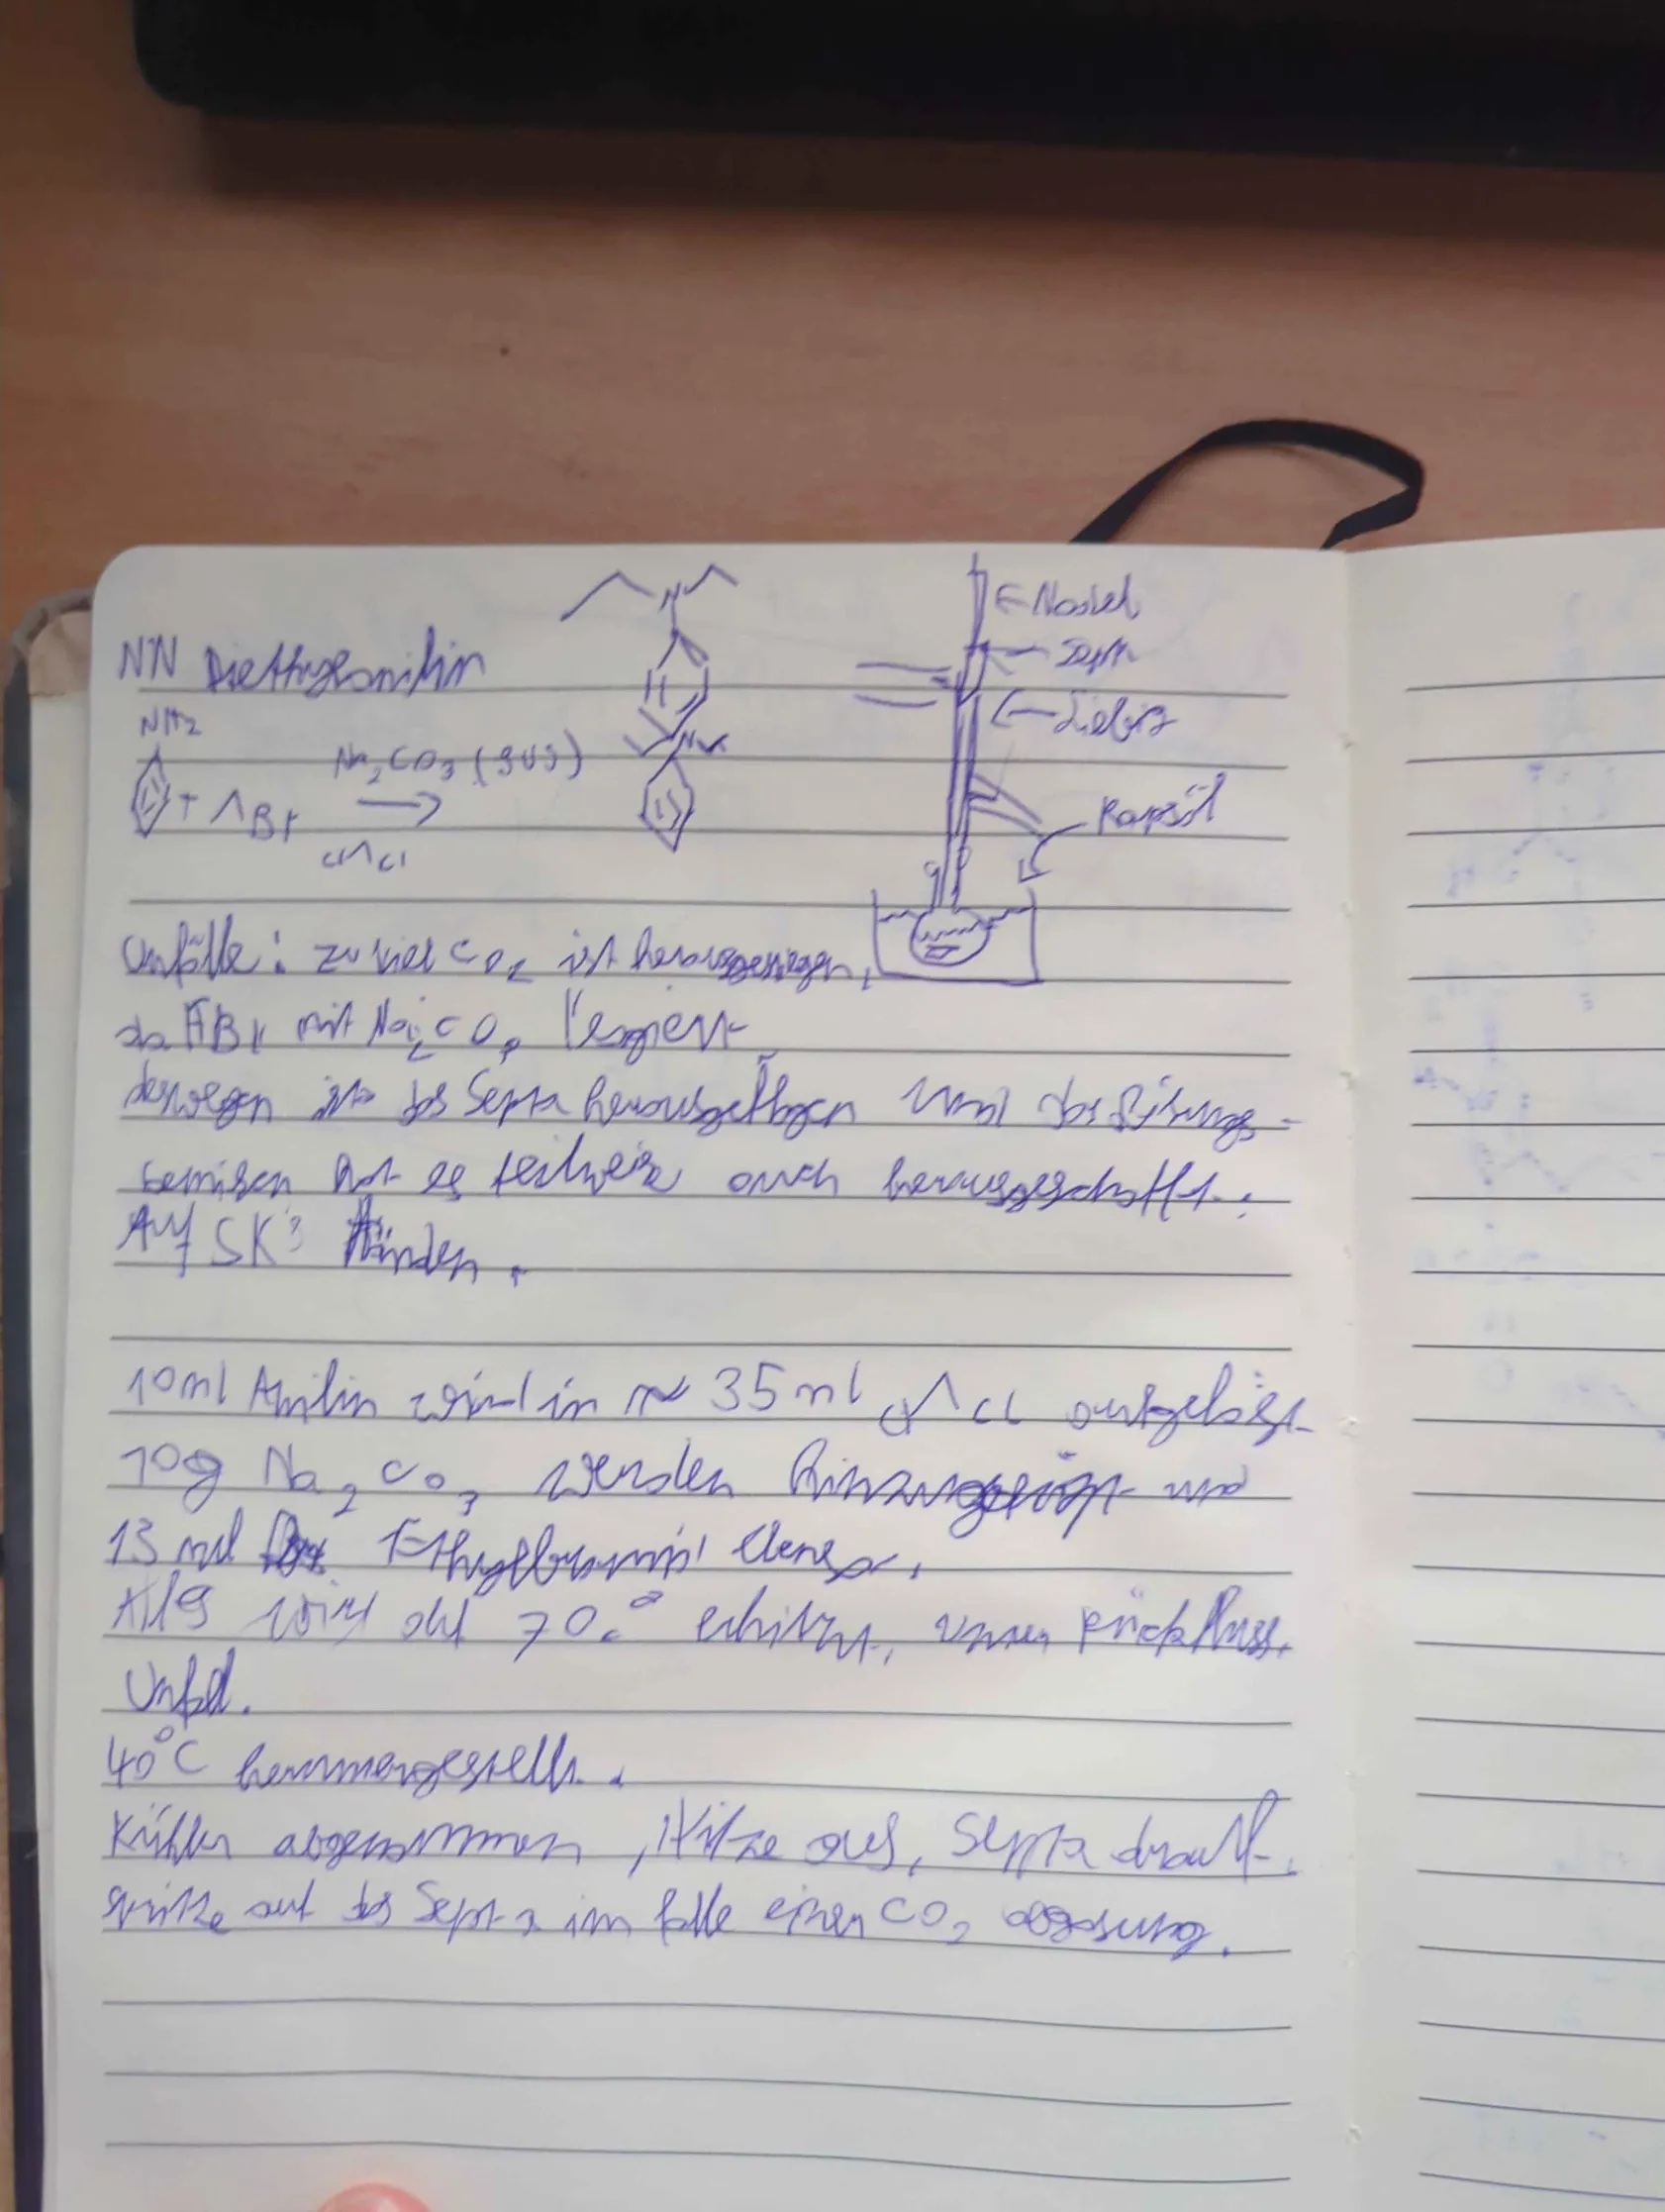 NN Diethylanilin
N
← Nadel
← Sept
← Liebig
Rapsöl
NH2
+ ΛBr
Na2CO3 (sus)
→
Cl Λ Cl
N
Unfälle: zu viel CO2 ist herausgestiegen,
da HBr mit Na2CO3 reagiert
deswegen ist das Septa herausgeflogen und das Lösungs-
gemisch hat es teilweise auch herausgeschafft.
Auf SK's Händen.
10ml Anilin wird in ~ 35 ml Cl Λ Cl aufgelöst
10g Na2CO3 werden hinzugefügt und
13 ml Ethylbromid
Alles wird auf 70° erhitzt, unter Rückfluss.
Unfall.
40°C heruntergestellt.
Kühler abgenommen, Hitze aus, Septa drauf.
Spritze auf das Septa im falle einer CO2 abgasung.